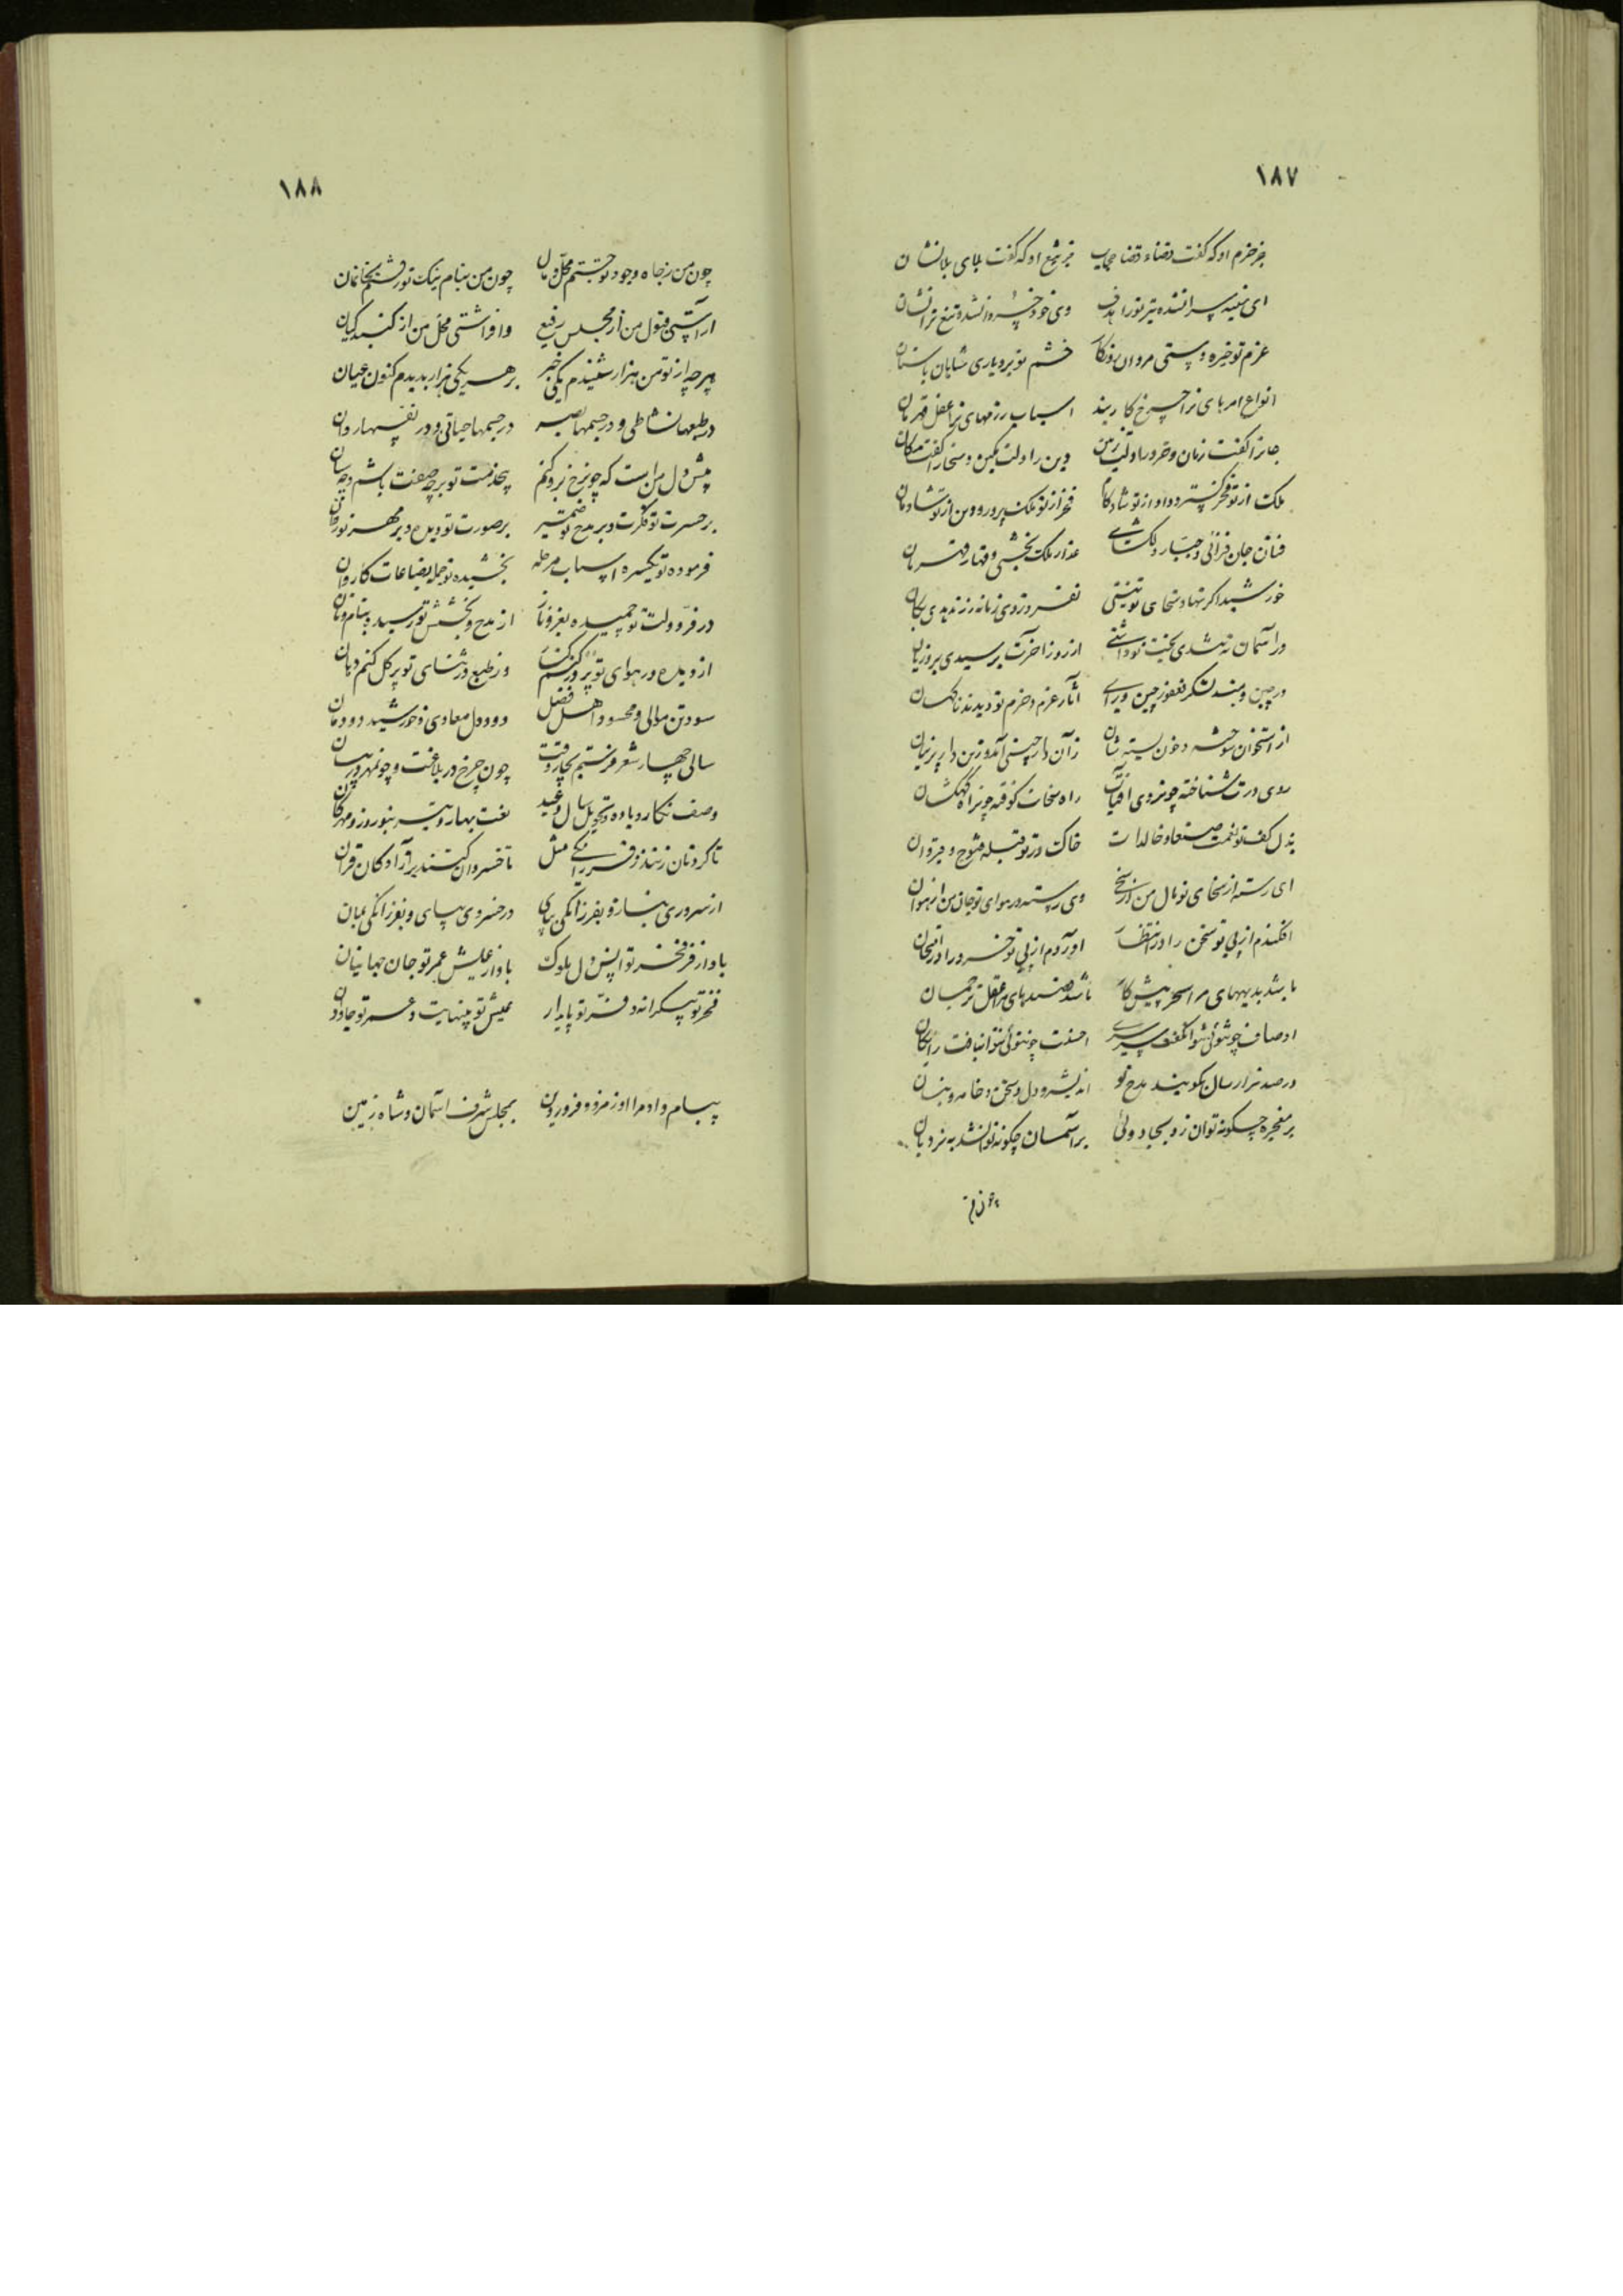 ۱۸۷
جز حزم او که گفت قضاء قضا حجاب جز تیغ او که گفت بلای بلانشان
ای سینه سرافکنده تیر تو را هدف وی خود خسروانشده تیغ ترا نشان
عزم تو خیره دستی مردان روزگار خشم تو بردباری شاهان باستان
انواع امرهای ترا چرخ کاربند اسباب رزمهای ترا عقل قهرمان
جانرا کفت زمان و خرد را دلت زمین دین را دلت مکین و سخا را کفت مکان
ملک از تو فخر گستر و داد از تو شادکام فخر از تو ملک پرور و دین از تو شادمان
فتان جان فزائی و جبار دلگشای غدار ملک بخشی و قهار قهرمان
خورشید اگر نهاد سخای تو نیستی
در آسمان نه سعد بخت تو داشتی از روز آخرت برسیدی بر و زیان
در چین و هند لشکر فغفور چین ورای آثار عزم و حزم تو دیدند ناگهان
از استخوان سوخته و خون بسته شان زان دارچینی آمد و زین دارپرنیان
روی درت شناخته چون روی آفتاب راه سخات کوفته چون راه کهکشان
بذل کف تو نعمت صنعا و خالدات خاک در تو قبله فتوح و قیروان
ای رسته از سخای تو مال من از سخی وی رسته در هوای تو جان من از هوان
افکندم از پی تو سخن را در انتظار آوردم از پی تو خرد را در امتحان
تا شد بدیهه‌های مرا سحر پیشکار تا شد قصیده‌های مرا عقل ترجمان
اوصاف چو توئی نتوان گفت سرسری احسنت چو توئی نتوان یافت رایگان
در صد هزار سال نگویند مدح تو اندیشه و دل و سخن و خامه و بنان
بر معجزه چگونه توان زد بجادوئی بر آسمان چگونه توان شد به نردبان
چون من
۱۸۸
چون من ز جاه و جود تو جستم محل و مال چون من بنام نیک تو رفتم بخانمان
آراستی قبول من از مجلس رفیع وافراشتی محل من از گنبد کیان
هرچه از تو من هزار شنیدم یکی خبر بر هر یکی هزار بدیدم کنون عیان
در طبعها نشاطی و در چشمها بصر در جسمها حیاتی و در نفسها روان
پیش دل من است که چون رخ نرو کنم بخدمت تو بر چه صفت باشم و چه سان
بر حسرت تو فکرت و بر مدح تو ضمیر بر صورت تو دیده و بر مهر تو روان
فرموده تو یکسره اسباب مرحله بخشیده تو جمله بضاعات کاروان
در فر دولت تو چمیده بعز و ناز از مدح و بخشش تو رسیده بنام و نان
از دیده در هوای تو پر در کنم کنار وز طبع در ثنای تو پر گل کنم دهان
سود تن موالی و محسود اهل فضل دود دل معادی و خورشید دودمان
سالی چهار شعر فرستم بچار وقت چون چرخ در بلاغت و چون مهر در بیان
وصف نگار و باده و تحویل سال و عید نعت بهار و تیر و نوروز و مهرگان
تا گردنان زنند ز فرزانگی مثل تا خسروان کنند بر آزادگان قران
از سروری بناز و بفرزانگی بپای در خسروی بپای و بفرزانگی بمان
باد از فر فخر تو انس دل ملوک باد از عیش عمر تو جان جهانیان
فخر تو بیکرانه و فر تو پایدار عیش تو بینهایت و عمر تو جاودان
پیام داد مرا اورمزد و فروردین بمجلس شرف آسمان و شاه زمین